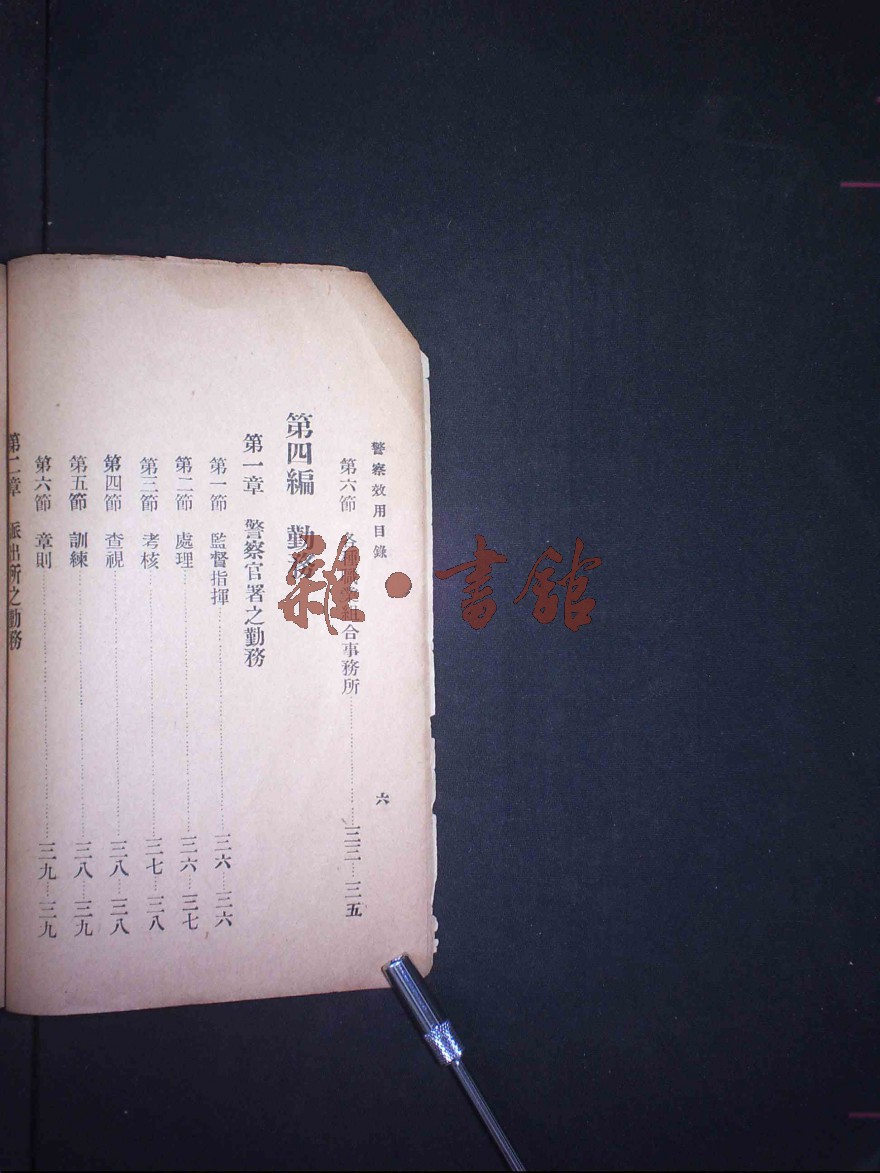 警察效用目錄
六
第六節 各 合事務所……三三…三五
第四編 勤務
第一章 警察官署之勤務
第一節 監督指揮……三六…三六
第二節 處理……三六…三七
第三節 考核……三七…三八
第四節 查視……三八…三八
第五節 訓練……三八…三九
第六節 章則……三九…三九
第二章 派出所之勤務
雜·書館